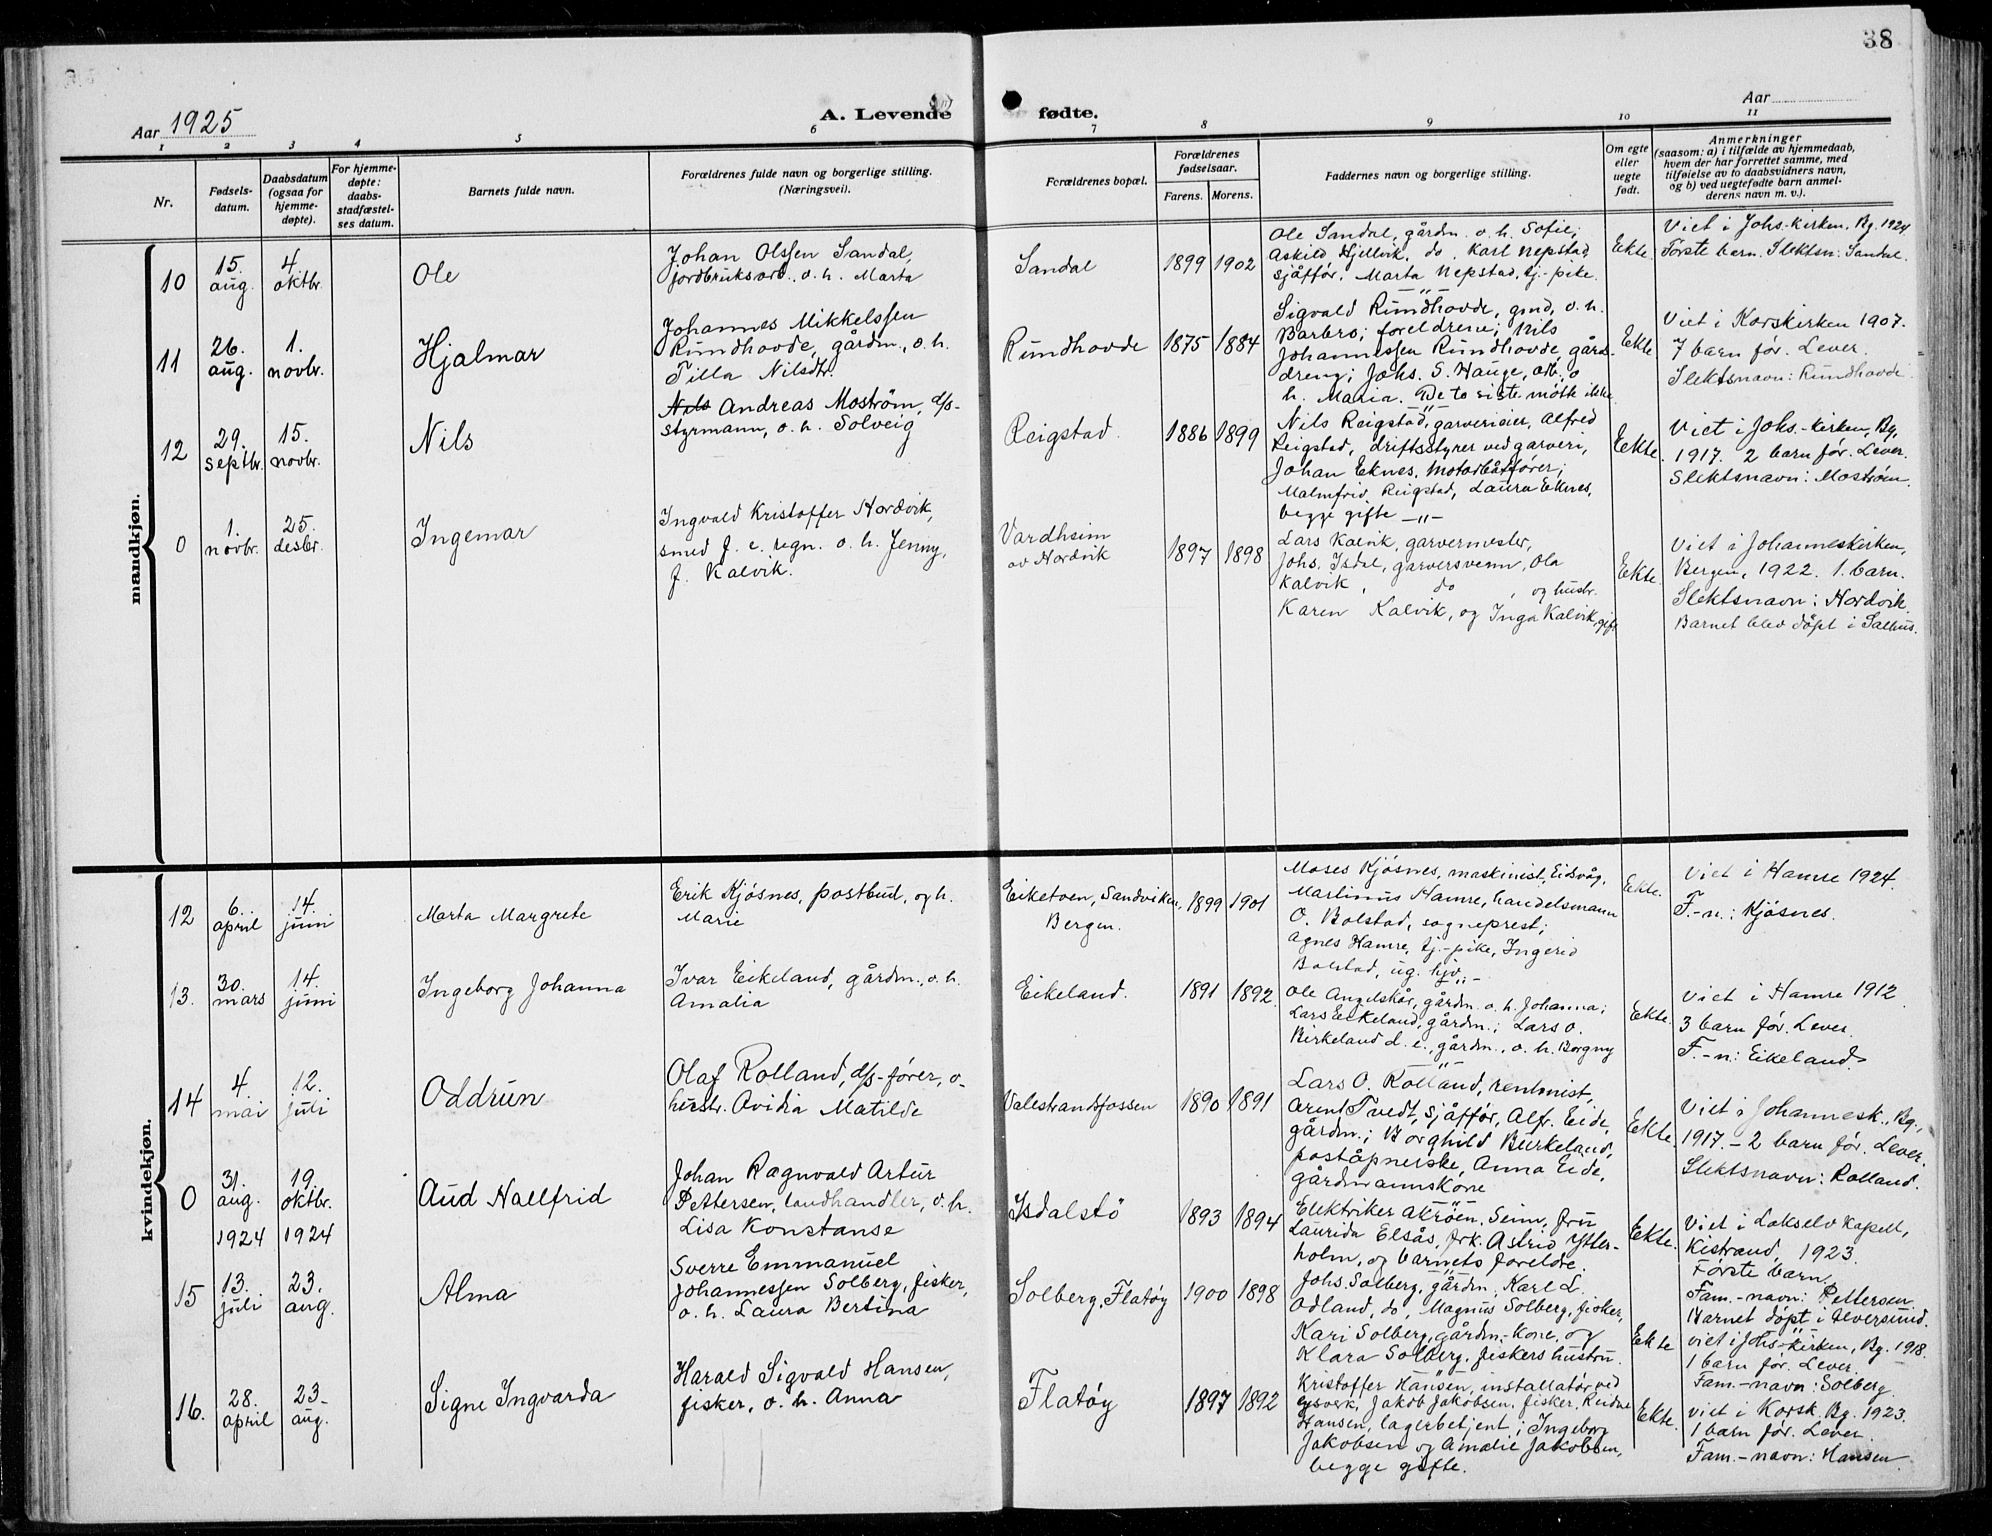 38
Aar 1925
A. Levende fødte.
Aar
1 2 3 4 5 6 7 8 9 10 11
Nr.
Fødsels-
datum.
Daabsdatum
(ogsaa for
hjemme-
døpte).
For hjemme-
døpte:
daabs-
stadfæstel-
ses datum.
Barnets fulde navn.
Forældrenes fulde navn og borgerlige stilling.
(Næringsvei).
Forældrenes bopæl.
Forældrenes
fødselsaar.
Farens. Morens.
Faddernes navn og borgerlige stilling.
Om egte
eller
uegte
født.
Anmerkninger
(saasom: a) i tilfælde av hjemmedaab,
hvem der har forrettet samme, med
tilføielse av to daabsvidners navn,
og b) ved uegtefødte barn anmel-
derens navn m. v.).
mandkjøn.
10
15.
aug.
4.
oktbr.
Ole
Johan Olssen Sandal,
jordbruksarb., o. h. Marta
Sandal
1899 1902
Ole Sandal, gårdm. o. h. Sofie;
Askild Hjellvik, do. Karl Nepstad,
sjåffør, Marta Nepstad, tj.-pike.
Ekte.
Viet i Johs.-kirken, Bg. 1924
Første barn. Slektsn: Sandal.
11
26.
aug.
1.
novbr.
Hjalmar
Johannes Mikkelssen
Rundhovde, gårdm., o. h.
Tilla Nilsdtr.
Rundhovde
1875 1884
Sigvald Rundhovde, gmd, o. h.
Barbro; foreldrene; Nils
Johannessen Rundhovde, gårds-
dreng; Johs. S. Hauge, arb. o
h. Maria. De to siste møtte ikke
Ekte
Viet i Korskirken 1907.
7 barn før. Lever.
Slektsnavn: Rundhovde.
12
29.
septbr.
15.
novbr.
Nils
Nils Andreas Mostrøm, d/s-
styrmann, o. h. Solveig
Reigstad.
1886 1899
Nils Reigstad, garverieier, Alfred
Reigstad, driftsstyrer ved garveri,
Johan Eknes, motorbåtfører;
Malmfrid Reigstad, Laura Eknes,
begge gifte —„—
Ekte.
Viet i Johs.-kirken, Bg,
1917. 2 barn før. Lever.
Slektsnavn: Mostrøm.
0
1.
novbr.
25.
desbr.
Ingemar
Ingvald Kristoffer Nordvik,
smed f. e. regn. o. h. Jenny,
f. Kalvik.
Vardheim
av Nordvik
1897 1898
Lars Kalvik, garvermester,
Johs. Isdal, garversvenn, Ola
Kalvik, do , og hustr.
Karen Kalvik, og Inga Kalvik, gift
Ekte.
Viet i Johanneskirken,
Bergen, 1922. 1. barn.
Slektsnavn: Nordvik.
Barnet blev døpt i Salhus.
kvindekjøn.
12
6.
april
14.
juni
Marta Margrete
Erik Kjøsnes, postbud, og h.
Marie
Eiketoen, Sandviken,
Bergen.
1899 1901
Moses Kjøsnes, maskinist, Eidsvåg,
Martinus Hamre, handelsmann
O. Bolstad, sogneprest;
Agnes Hamre, tj.-pike, Ingerid
Bolstad, ug. hjv.
Ekte.
Viet i Hamre 1924.
F.-n.: Kjøsnes.
13.
30.
mars
14.
juni
Ingeborg Johanna
Ivar Eikeland, gårdm., o. h.
Amalia
Eikeland.
1891 1892
Ole Angelskår, gårdm. o. h. Johanna;
Lars Eikeland, gårdm.; Lars O.
Birkeland d. e., gårdm., o. h. Borgny
Ekte.
Viet i Hamre 1912
3 barn før. Lever.
F.-n.: Eikeland.
14
4.
mai
12.
juli
Oddrun
Olaf Rolland, d/s-fører, o-
hustr. Ovidia Matilde
Valestrandsfossen
1890 1891
Lars O. Rolland, rentenist,
Arent Tvedt, sjåffør, Alfr. Eide,
gårdm.; Borghild Birkeland,
poståpnerske, Anna Eide,
gårdmannskone
Ekte.
Viet i Johannesk., Bg.,
1917 - 2 barn før. Lever.
Slektsnavn: Rolland.
0
31.
aug.
1924
19.
oktbr.
1924
Aud Hallfrid
Johan Ragnvald Artur
Pettersen, landhandler, o. h.
Lisa Konstanse
Isdalstø
1893 1894
Elektriker Akrøen, Seim, fru
Laurida Elsås, frk. Astrid Ytter-
holm, og barnets foreldre.
Ekte.
Viet i Lakselv kapell,
Kistrand, 1923.
Første barn.
Fam.-navn: Pettersen.
Barnet døpt i Alversund.
15
13.
juli
23.
aug.
Alma
Sverre Emmanuel
Johannessen Solberg, fisker,
o. h. Laura Bertina
Solberg, Flatøy
1900 1898
Johs. Solberg, gårdm. Karl L.
Odland, do, Magnus Solberg, fisker,
Kari Solberg, gårdm.-kone, og
Klara Solberg, fiskers hustru.
Ekte
viet i Johs-kirken, Bg. 1918.
1 barn før. Lever.
Fam.-navn: Solberg.
16.
28.
april
23-
aug.
Signe Ingvarda
Harald Sigvald Hansen,
fisker, o. h. Anna
Flatøy
1897 1892
Kristoffer Hansen, installatør ved
lysverk, Jakob Jakobsen, fisker, Reidar
Hansen, lagerbetjent; Ingeborg
Jakobsen og Amalie Jakobsen,
begge gifte.
Ekte.
viet i Korsk. Bg. 1923.
1 barn før. Lever.
Fam.-navn: Hansen.